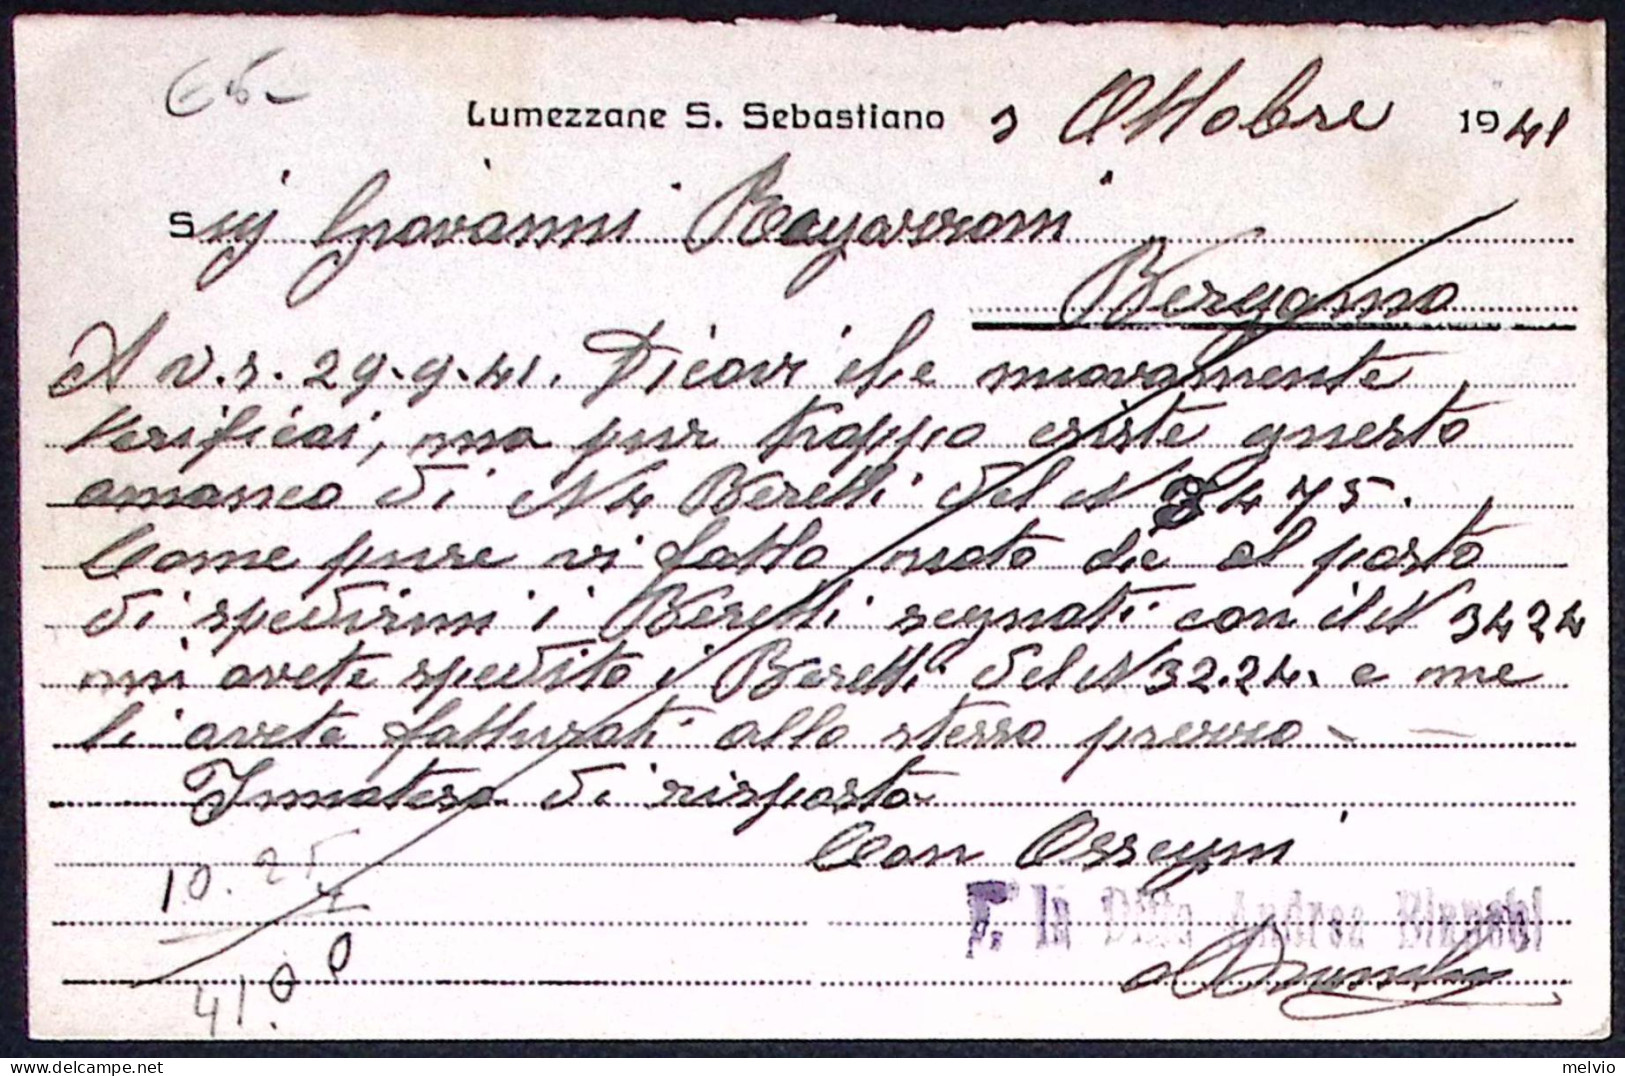 € 5-
Lumezzane S. Sebastiano 3 Ottobre 1941
Sig Giovanni
Bergamo
A v. s. 29.9.41. Dicovi che nuovamente
Verificai, ma pur troppo esiste questo
amanco di N 4 Beretti del N 3475.
Come pure vi fatto noto che al posto
di spedirmi i Beretti segnati con il N 3424
mi avete spedito i Beretti del N 32.24. e me
li avete fatturati allo stesso prezzo -
Inattesa di risposta
Con Ossequi
P. la Ditta Andrea Bianchi
10.25
4
41.00
melvio